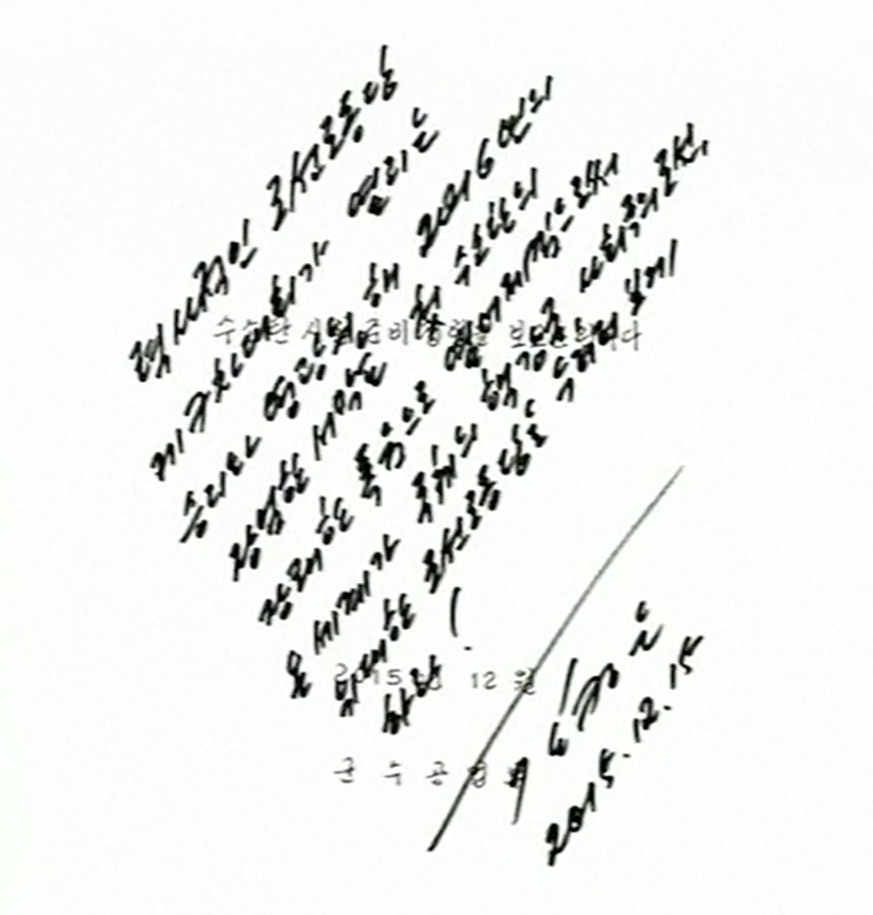 력사적인 조선로동당
제7차대회가 열리는
승리와 영광의 해 2016년의
장엄한 서막을 첫 수소탄의
장쾌한 폭음으로 열어제낌으로써
온 세계가 주체의 핵강국, 사회주의조선,
위대한 조선로동당을 우러러보게
하라!
수소탄 시험준비
2015년 12월
군수공업부
김정은
2015.12.15